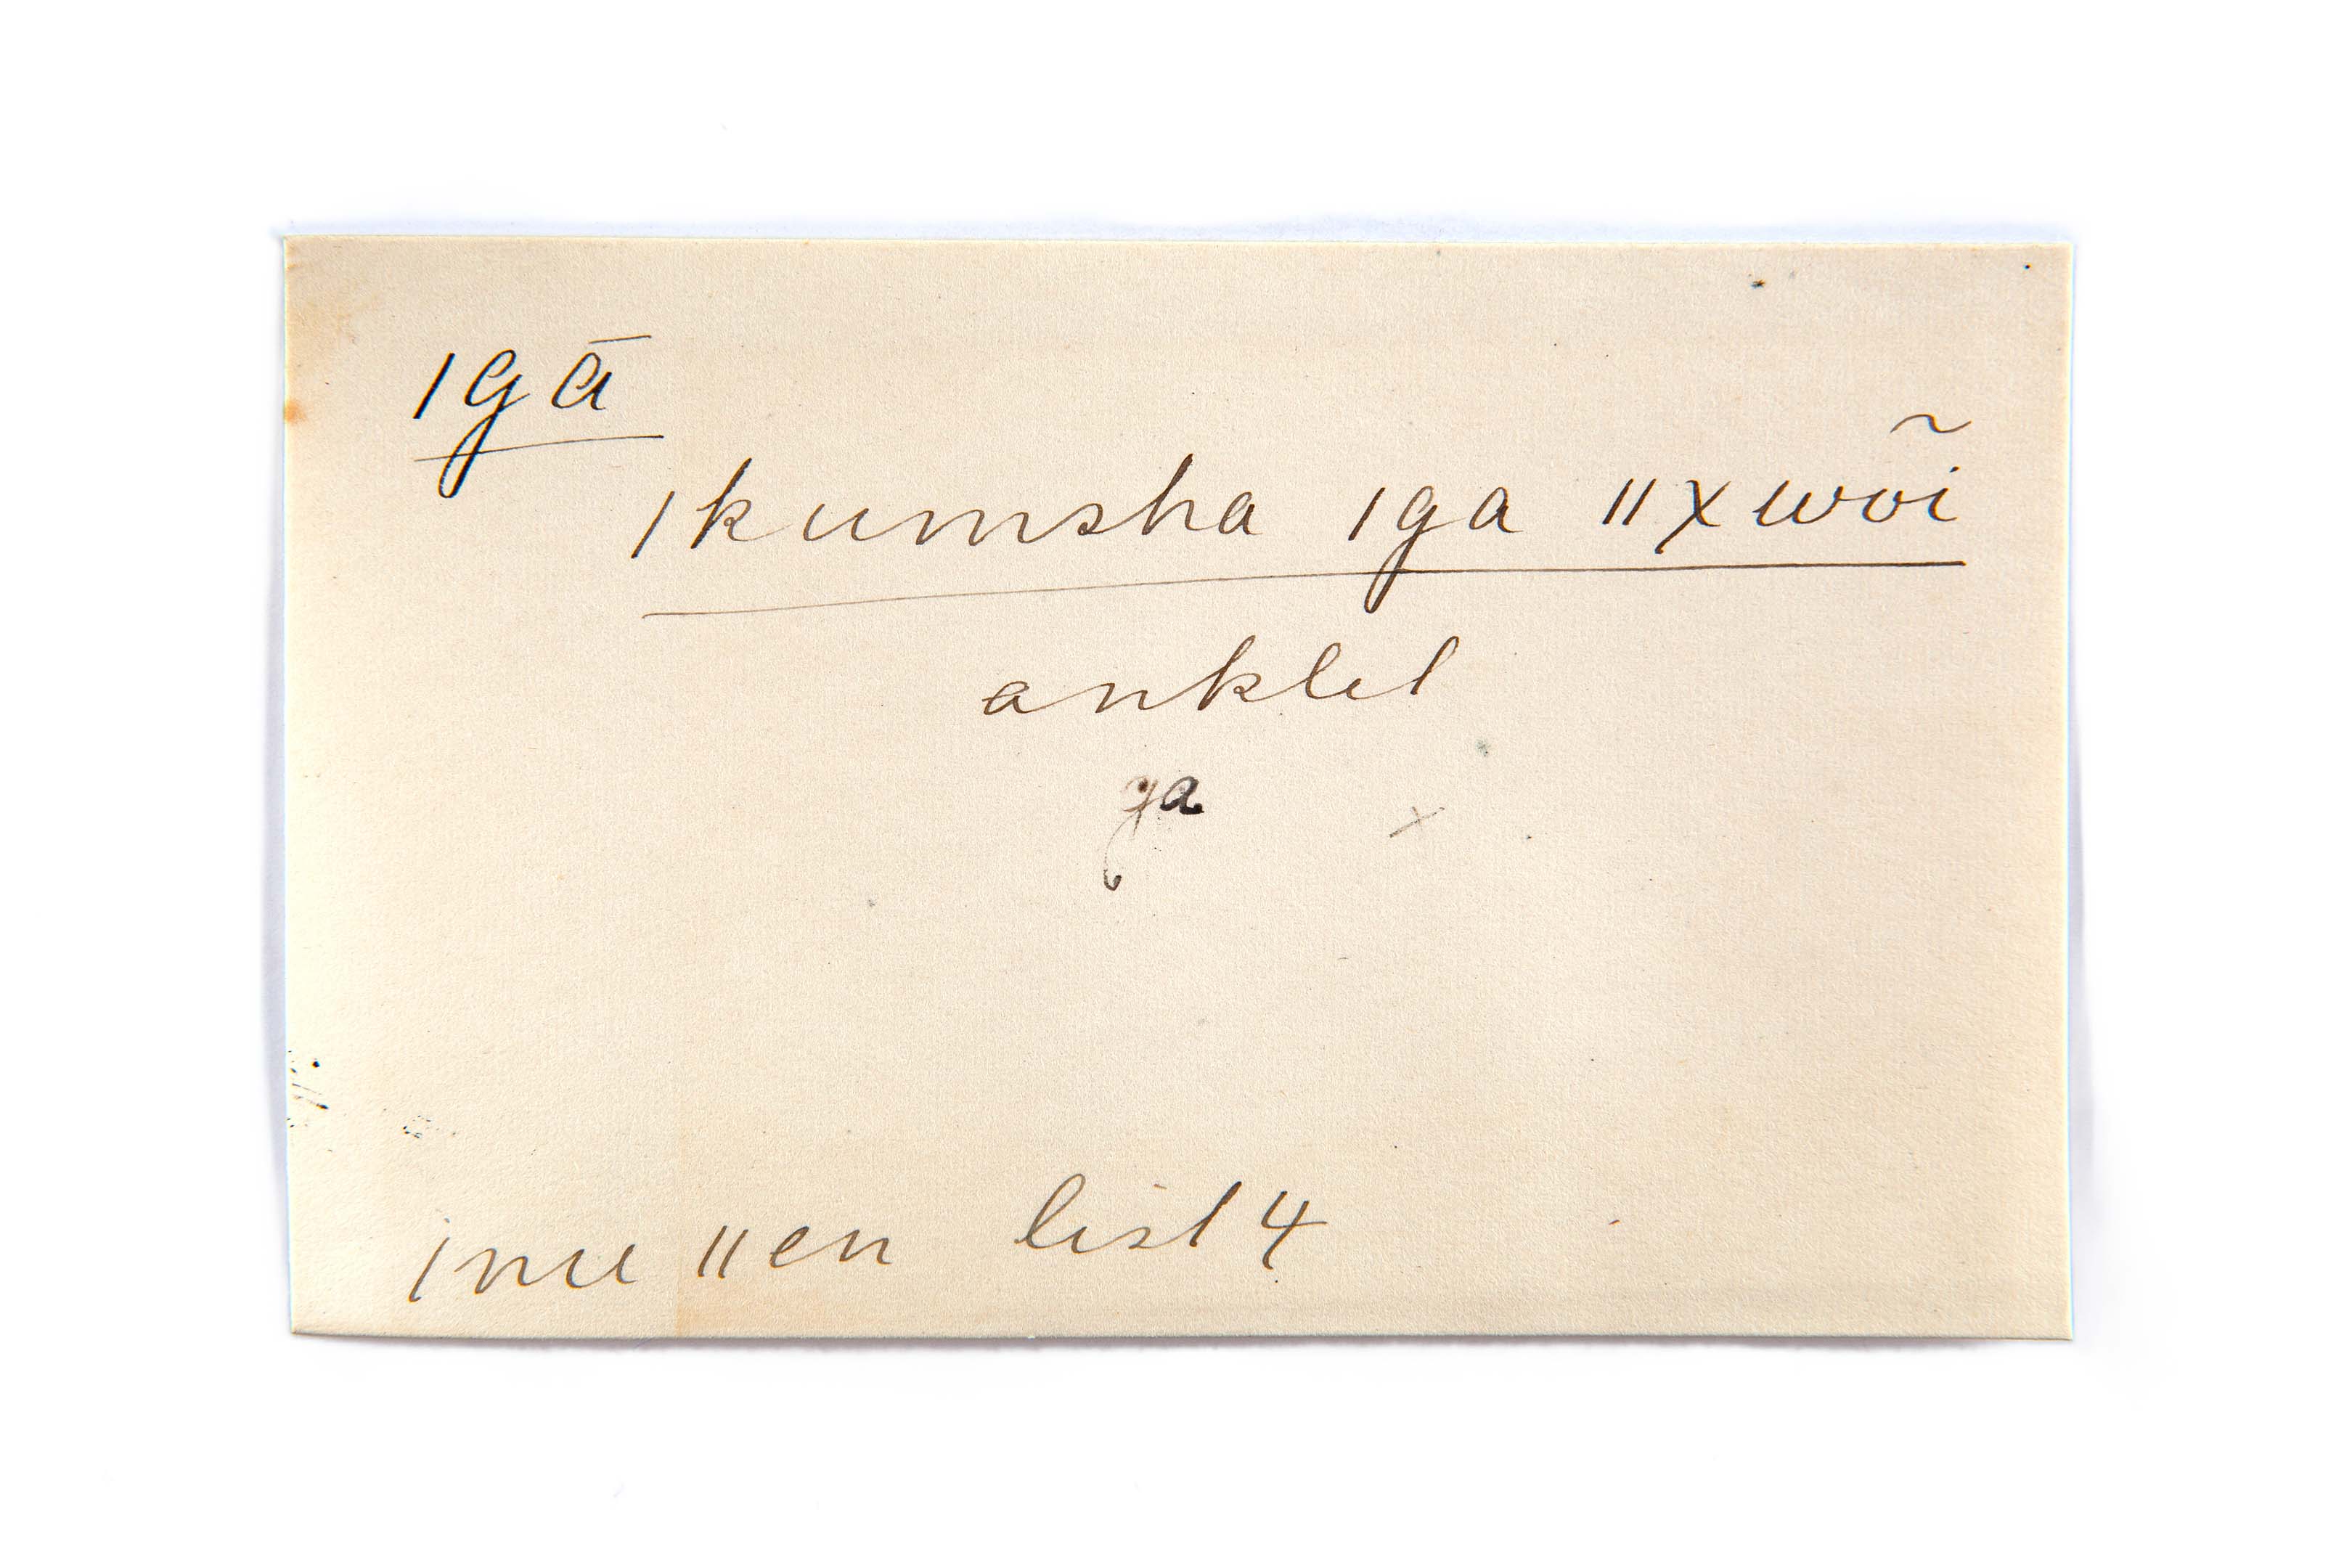 ǀgā
ǀkumsha ǀga ǁxwõi
anklet
ga
ǀnu ǁen list 4